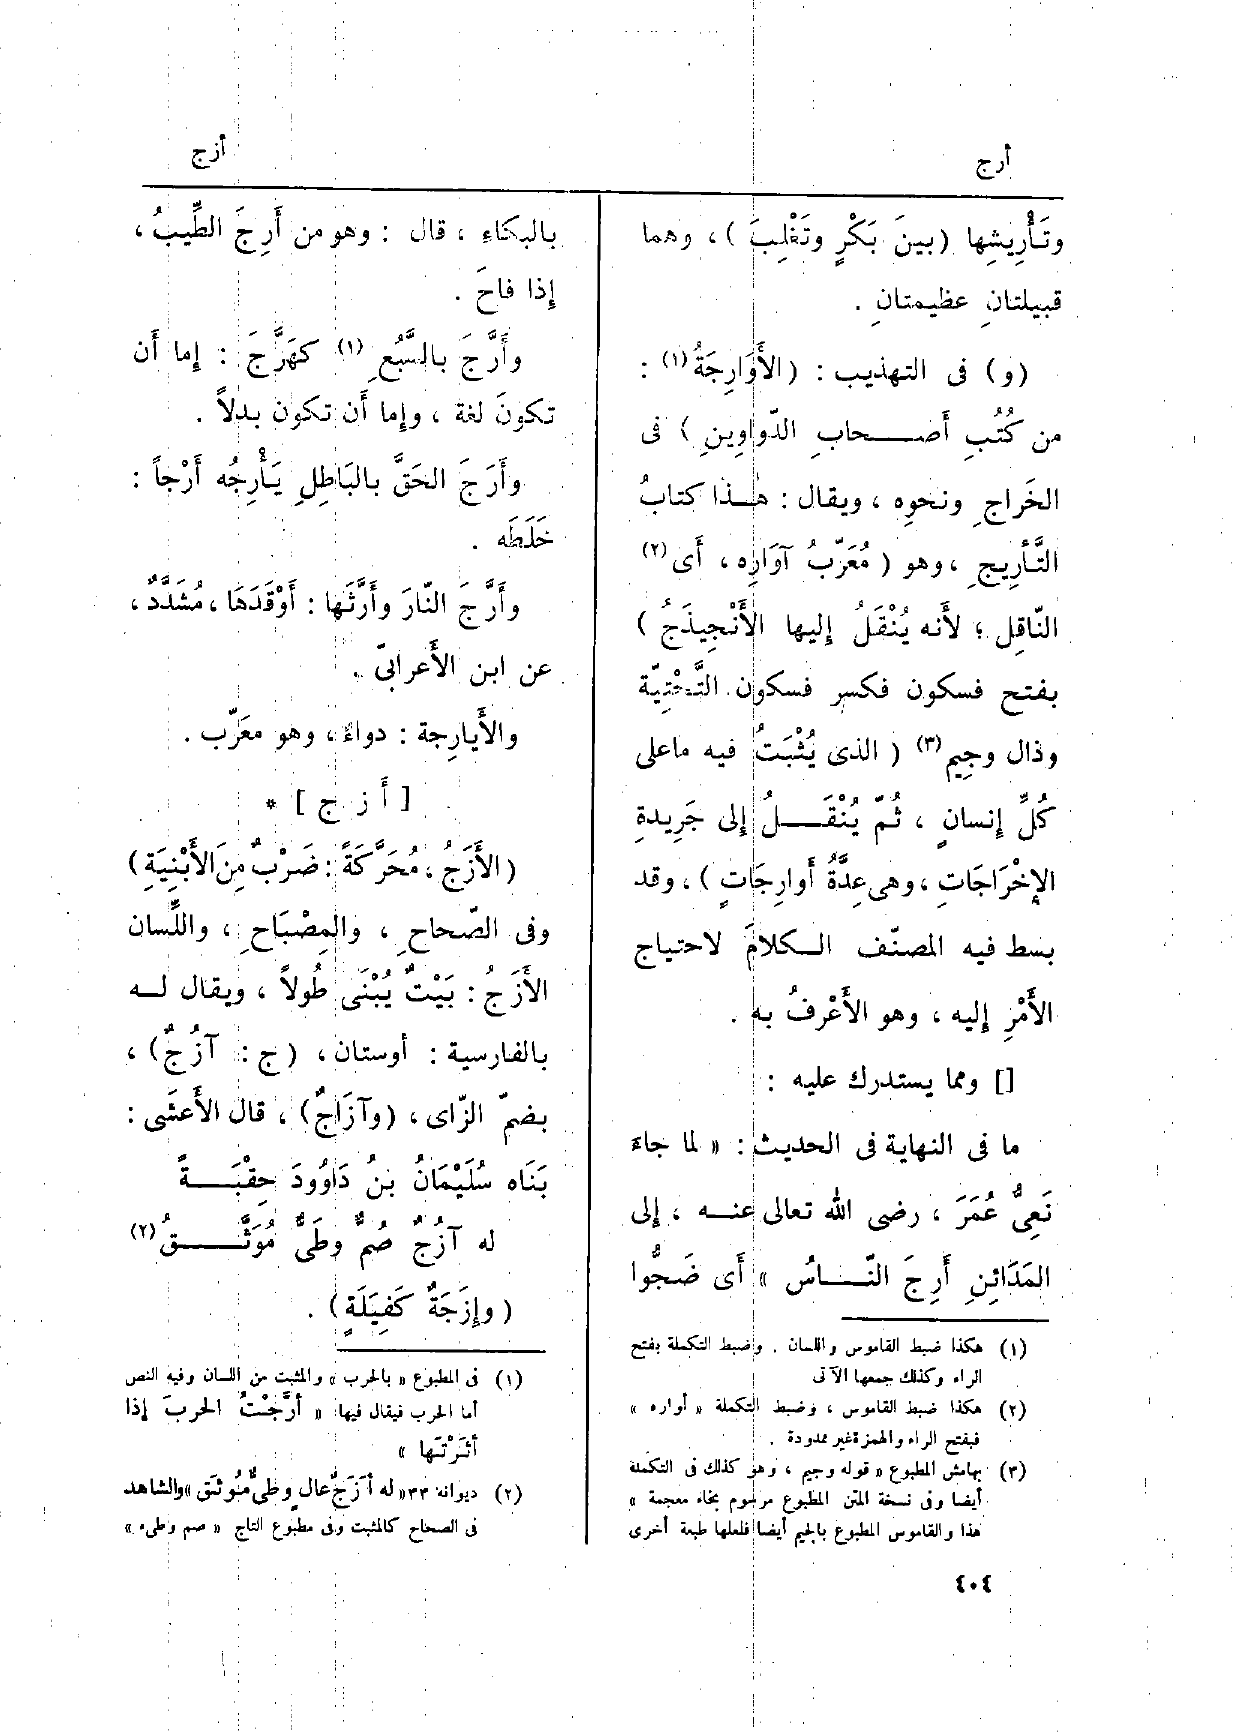 أرج
أزج
وتَأْرِيشِها (بينَ بَكْرٍ وتَغْلِبَ) ، وهما
قبيلتانِ عظيمتانِ .
(و) فى التهذيب : (الأَوَارِجَةُ (١) :
من كُتُبِ أَصحابِ الدّواوِينِ ) فى
الخَراجِ ونحوِه ، ويقال : هٰذا كتابُ
التَّأْرِيجِ ، وهو ( مُعَرّبُ آوَارِه ، أَى (٢)
النّاقِل ؛ لأَنه يُنْقَلُ إليها الأَنْجِيذَجُ )
بفتح فسكون فكسر فسكون التَّحْتِيّة
وذال وجِيم (٣) ( الذى يُثْبَتُ فيه ماعلى
كُلِّ إِنسانٍ ، ثُمّ يُنْقَلُ إلى جَرِيدةِ
الإِخْرَاجَاتِ ، وهى عِدَّةُ أَوارِجَاتٍ ) ، وقد
بسط فيه المصنّف الكلامَ لاحتياج
الأَمْرِ إليه ، وهو الأَعْرفُ به .
[] ومما يستدرك عليه :
ما فى النهاية فى الحديث : « لما جاءَ
نَعِىُّ عُمَرَ ، رضى الله تعالى عنه ، إلى
المَدَائِنِ أَرِجَ النّاسُ » أَى ضَجُّوا
(١) هكذا ضبط القاموس واللسان . وضبط التكملة بفتح
الراء وكذلك جمعها الآتى
(٢) هكذا ضبط القاموس ، وضبط التكملة « أواره »
فبفتح الراء والهمزة غير ممدودة .
(٣) بهامش المطبوع « قوله وجيم ، وهو كذلك فى التكملة
أيضا وفى نسخة المتن المطبوع مرسوم بخاء معجمة »
هذا والقاموس المطبوع بالجيم أيضا فلعلها طبعة أخرى
بالبكاءِ ، قال : وهو من أَرِجَ الطِّيبُ ،
إذا فاحَ .
وأَرَّجَ بالسَّبُعِ (١) كهَرَّجَ : إما أَن
تكونَ لغة ، وإما أَن تكون بدلاً .
وأَرَجَ الحَقَّ بالبَاطِلِ يَأْرِجُه أَرْجاً :
خَلَطَه .
وأَرَّجَ النّارَ وأَرَّثَها : أَوْقَدَهَا ، مُشَدَّدٌ ،
عن ابن الأَعرابىّ .
والأَيارِجة : دواءٌ ، وهو معَرّب .
[ أ ز ج ] *
(الأَزَجُ ، مُحَرَّكَةً : ضَرْبٌ مِنَ الأَبْنِيَةِ )
وفى الصّحاحِ ، والمِصْبَاحِ ، واللِّسان
الأَزَجُ : بَيْتٌ يُبْنَى طُولاً ، ويقال له
بالفارسية : أوستان ، (ج : آزُجٌ ) ،
بضمّ الزّاى ، (وآزَاجٌ ) ، قال الأَعشَى :
بَنَاه سُلَيْمَانُ بنُ دَاوُودَ حِقْبَةً
له آزُجٌ صُمٌّ وطَىٌّ مُوَثَّقُ (٢)
( وإِزَجَةٌ كَفِيَلَةٍ ) .
(١) فى المطبوع « بالحرب » والمثبت من اللسان وفيه النص
أما الحرب فيقال فيها : « أَرَّجْتُ الحربَ إذا
أَثَرْتَها »
(٢) ديوانه ٣٣ « له أَزَجٌ عالٍ وطىٌّ مُوثَق » والشاهد
فى الصحاح كالمثبت وفى مطبوع التاج « صم وطىء »
٤٠٤